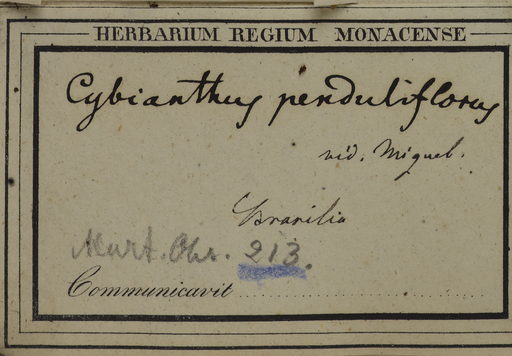 HERBARIUM REGIUM MONACENSE
Cybianthus penduliflorus
vid. Miquel.
Brasilia
Mart. Obs. 213.
Communicavit